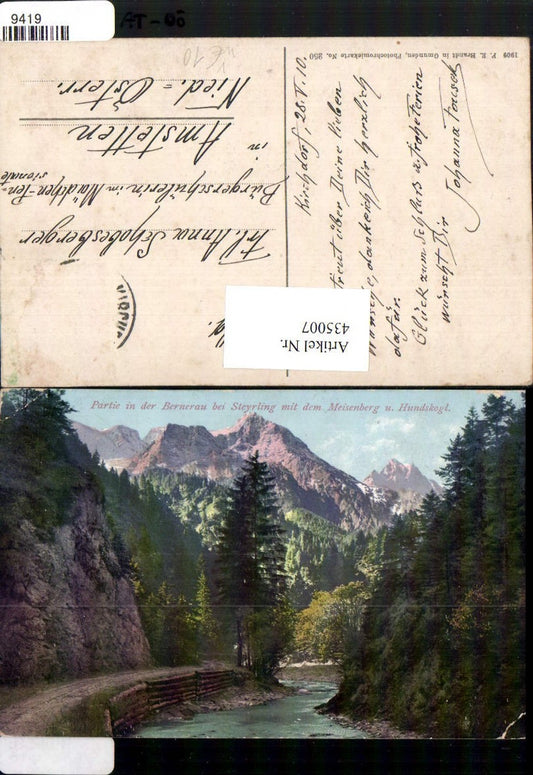 9419
AT-OÖ
1909 F. E. Brandt in Gmunden, Photochromiekarte No. 250
Kirchdorf, 28. V. 10.
freut über Deine lieben
danke ich Dir herzlich
dafür.
Glück zum Schluss u. frohe Ferien
wünscht Dir
Johanna
Frl. Anna Schobesberger
Bürgerschülerin im Mädchen-Pen-
sionate
in
Amstetten
Nied.=Österr.
Artikel Nr.
435007
Partie in der Bernerau bei Steyrling mit dem Meisenberg u. Hundskogl.